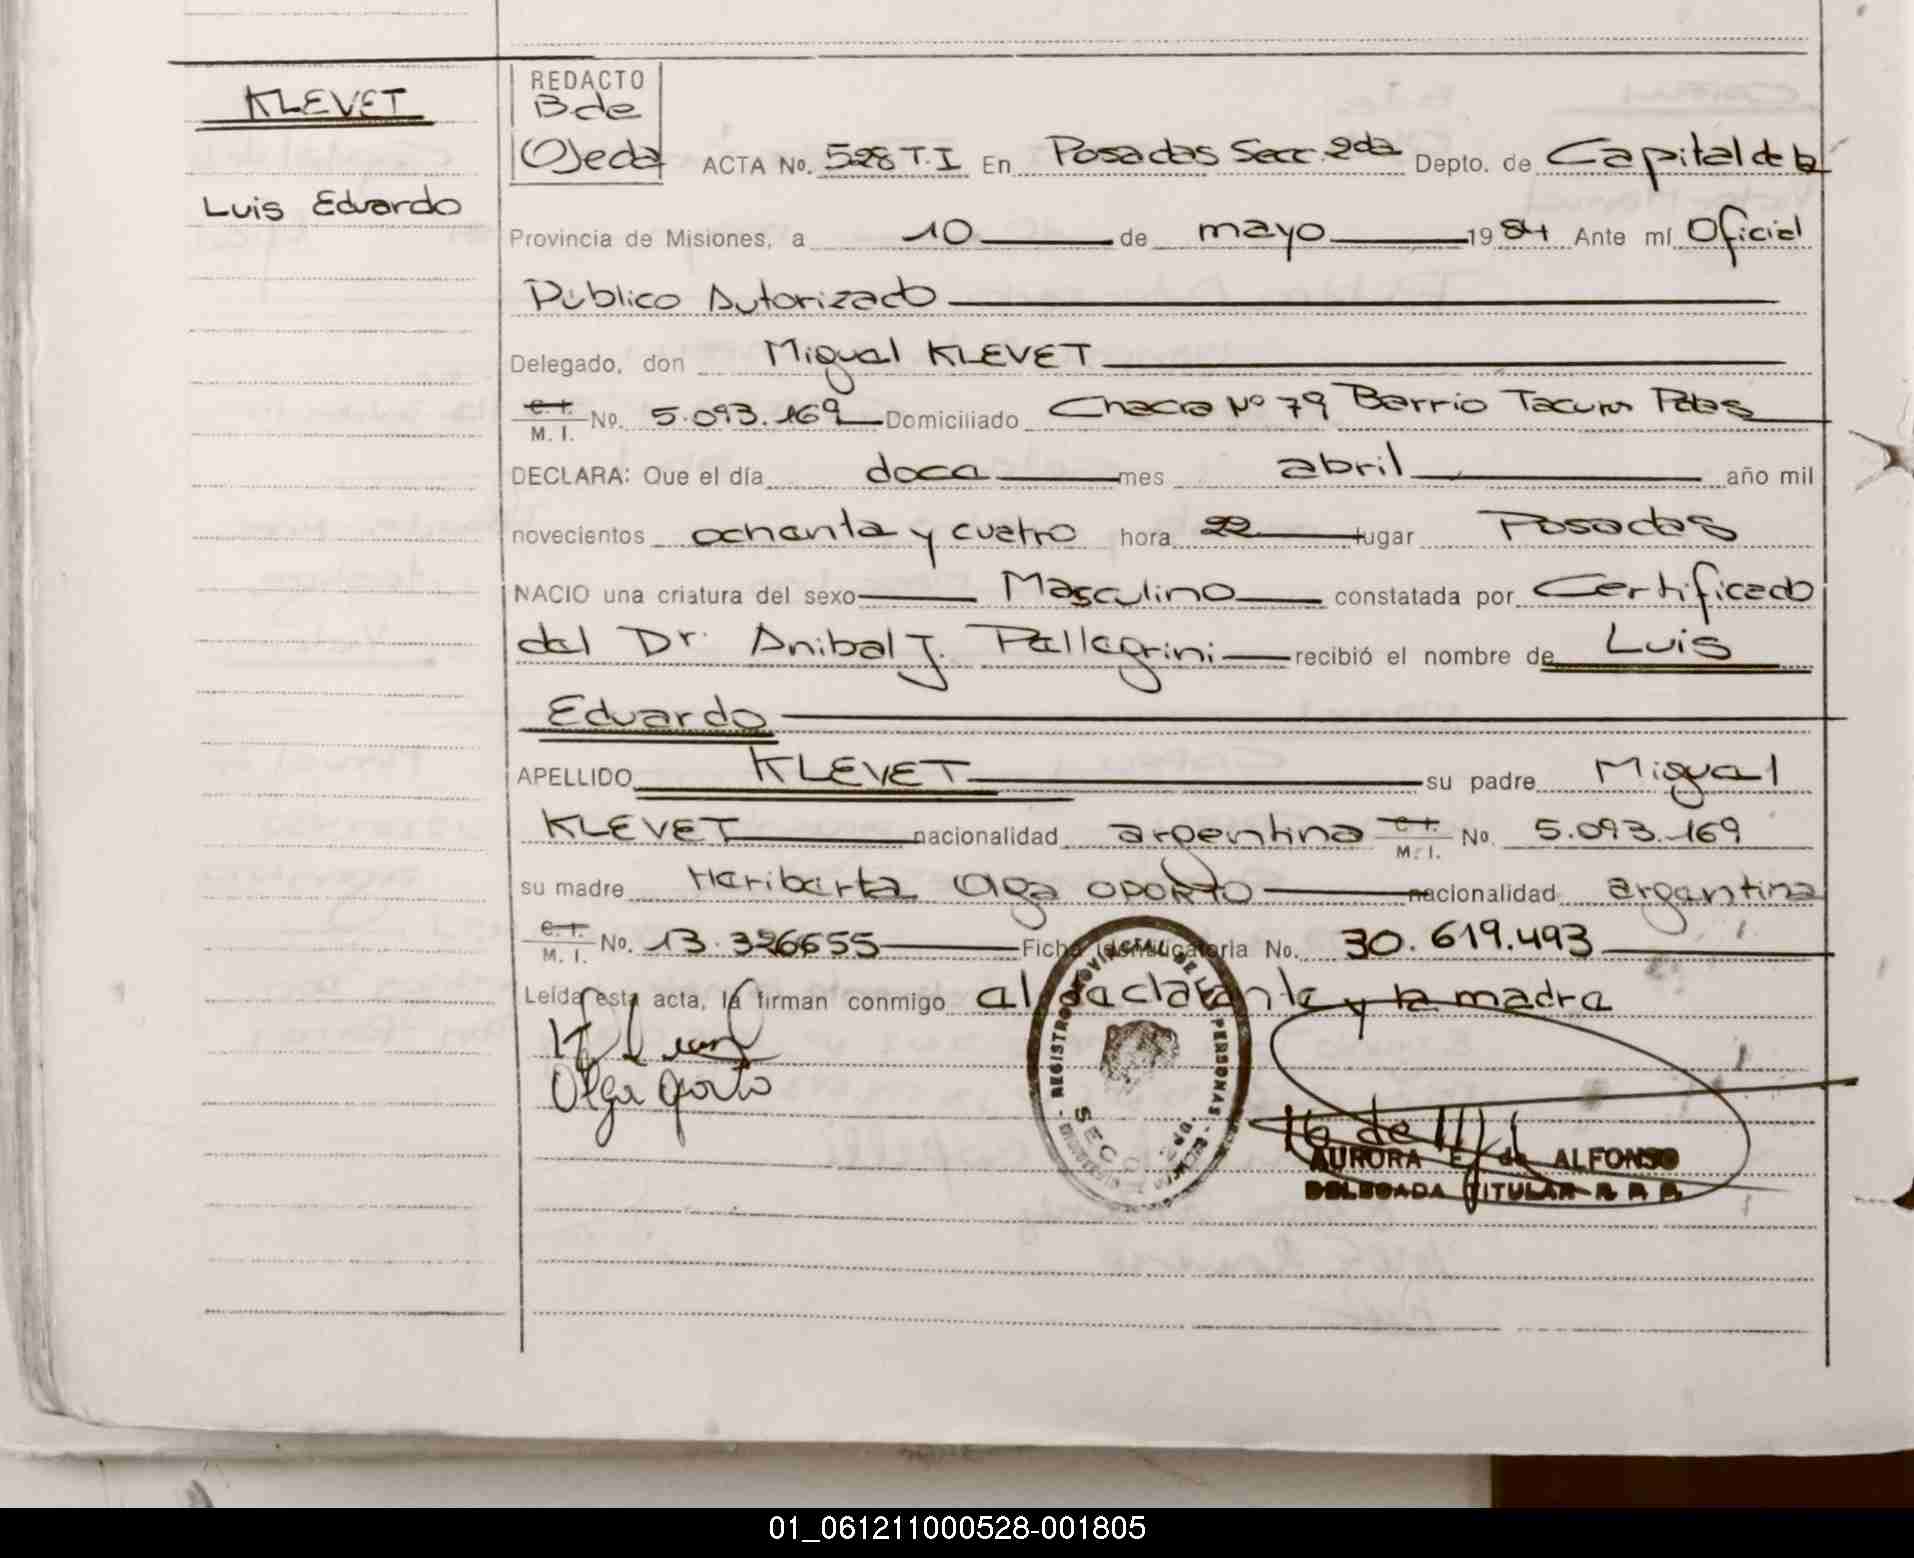 KLEVET
Luis Eduardo
REDACTO
B de
Ojeda
ACTA No. 528 T.I En Posadas Secc. 2da Depto. de Capital de la
Provincia de Misiones, a 10 de mayo 1984 Ante mí Oficial
Público Autorizado
Delegado, don Miguel KLEVET
C. I. M. I. No. 5.093.169 Domiciliado Chacra Nº 79 Barrio Tacuru Pdas
DECLARA: Que el día doce mes abril año mil
novecientos ochenta y cuatro hora 22 lugar Posadas
NACIO una criatura del sexo Masculino constatada por Certificado
del Dr. Anibal J. Pellegrini recibió el nombre de Luis
Eduardo
APELLIDO KLEVET su padre Miguel
KLEVET nacionalidad argentina C. I. M. I. No. 5.093.169
su madre Heriberta Olga OPORTO nacionalidad argentina
C. I. M. I. No. 13.326655 Ficha identificatoria No. 30.619.493
Leída esta acta, la firman conmigo el declarante y la madre
Olga Oporto
REGISTRO PROVINCIAL DE LAS PERSONAS
SECC. 2da
AURORA E. de ALFONSO
DELEGADA TITULAR R. P. P.
01_061211000528-001805